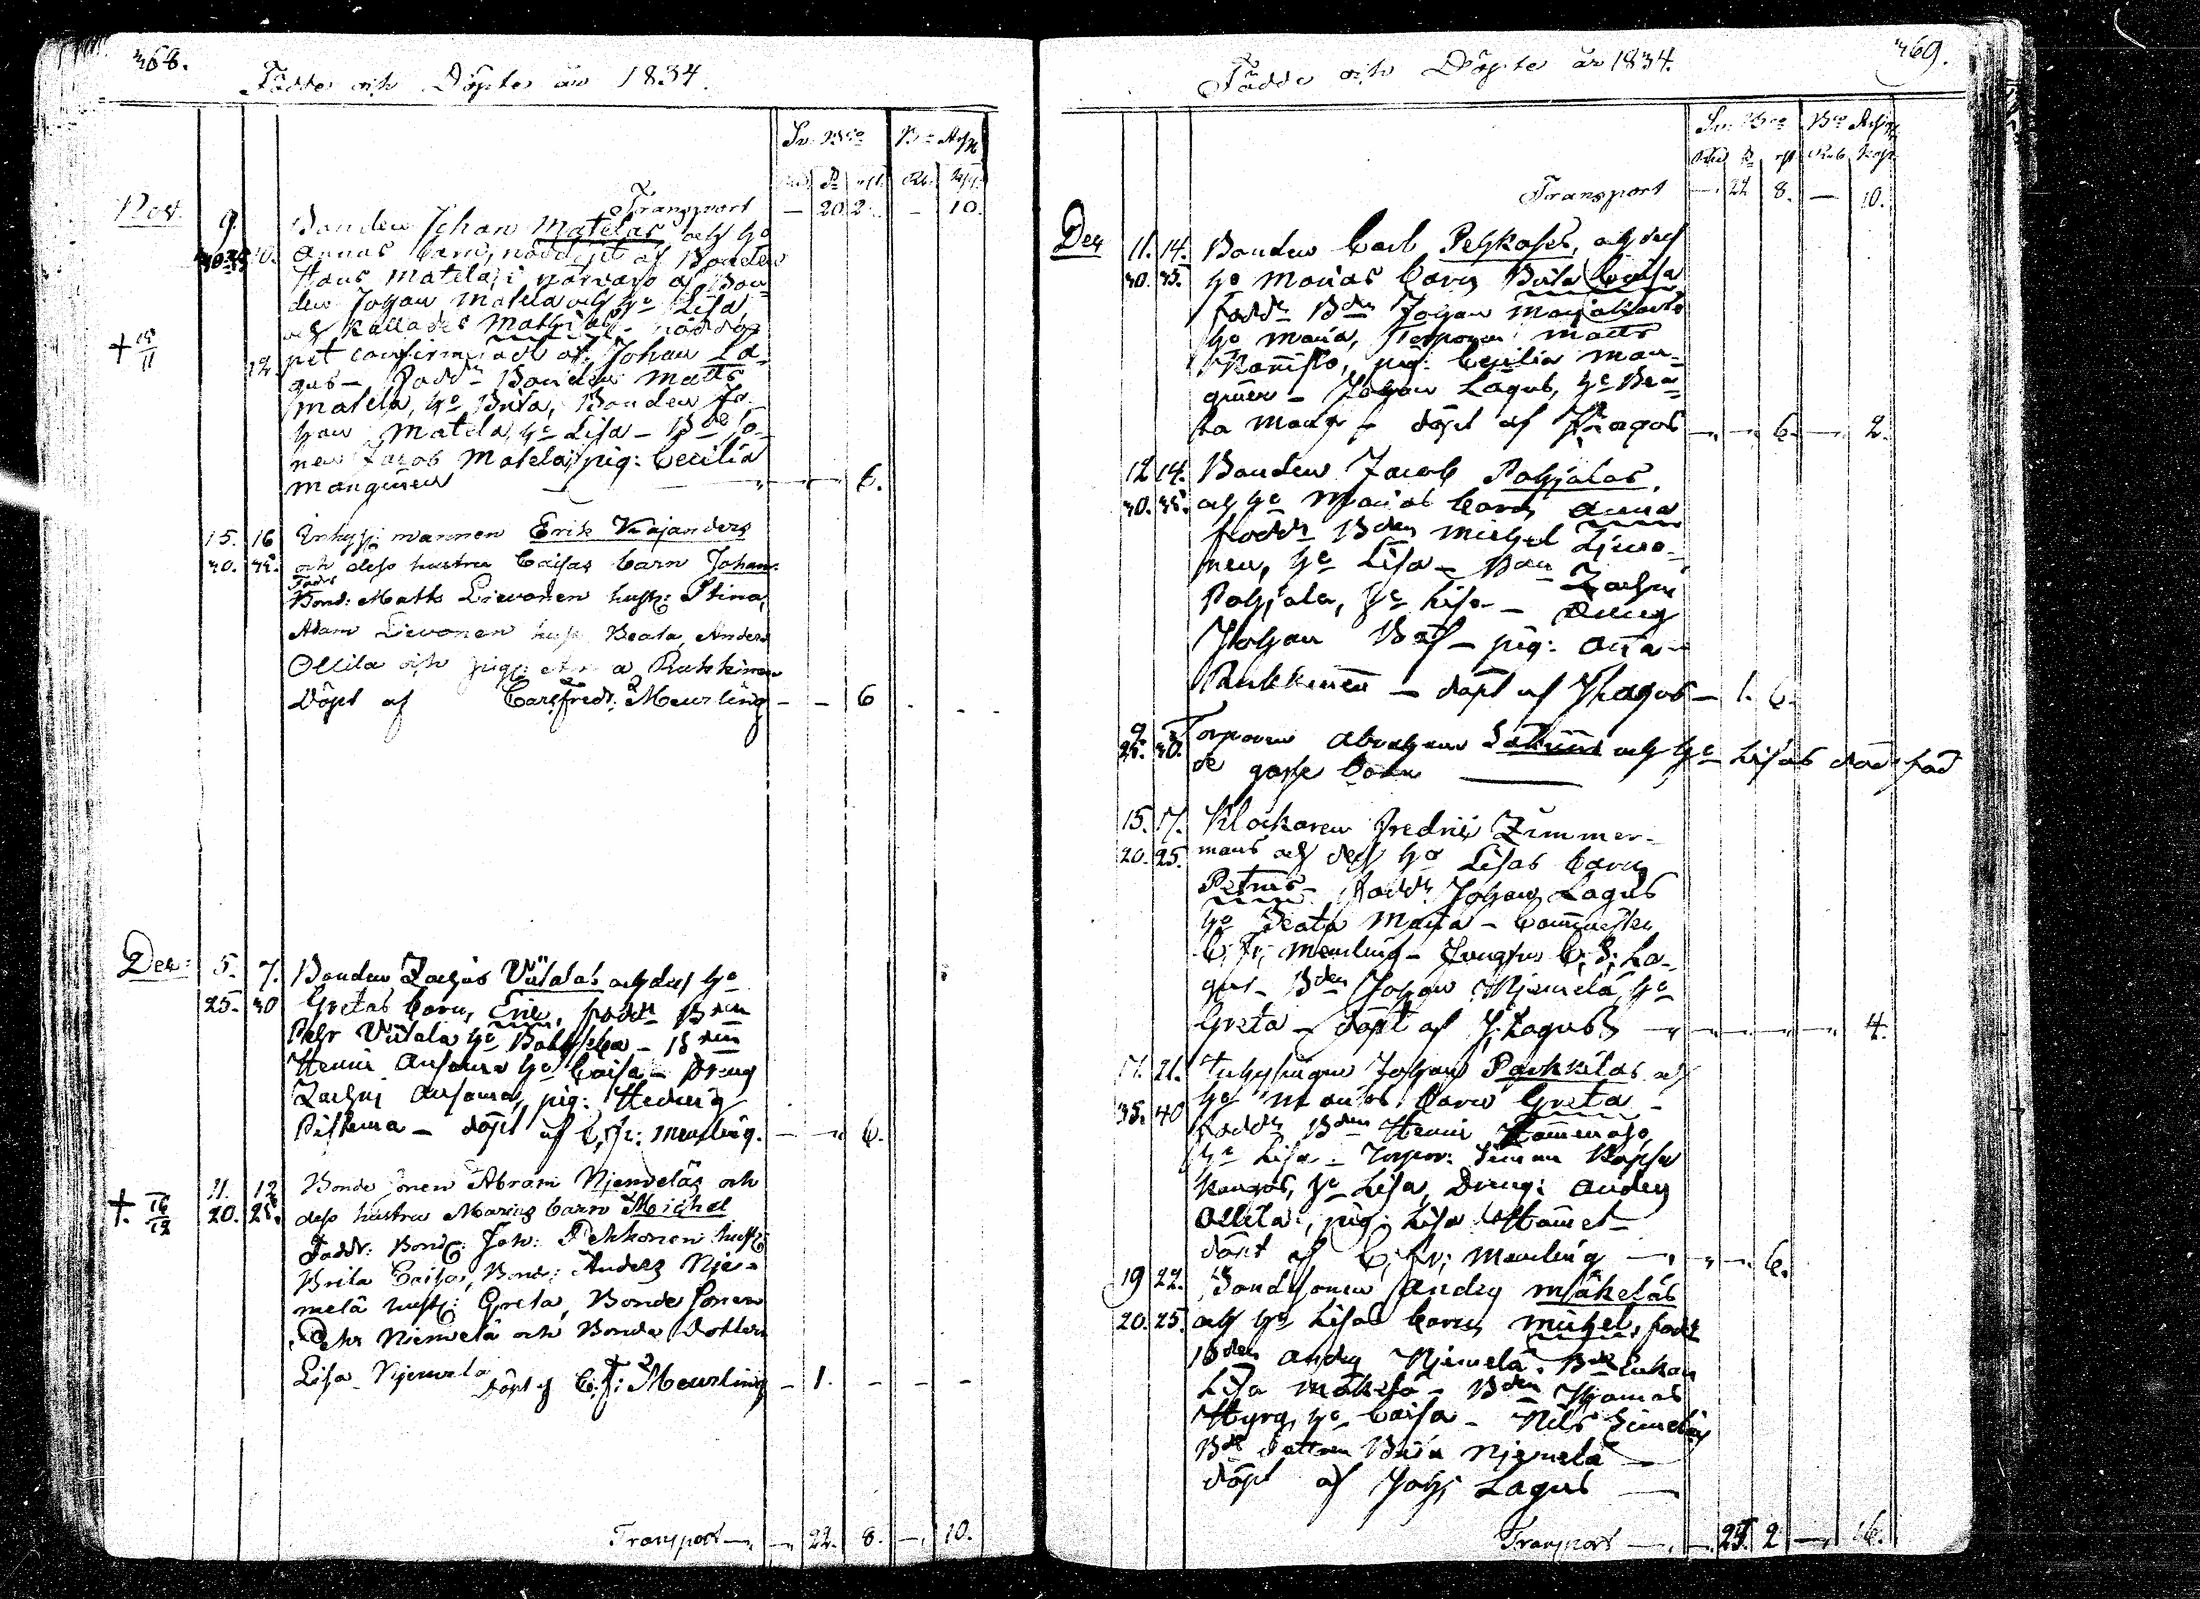 368.
Födde och Döpte år 1834.
Sv. Bco
Transport — 20 2 — 10.
Nov. 9.
Bonden Johan Matelas och ho
Annas barn, nöddöpt af Bonden
Hans Matela, i närvaro af Bon
den Johan Matela och ho Lisa
och kallades Mathias - nöddö
pet confirmeradt af Johan La-
gus - Fadd: Bonden Matts
Matela, ho Brita, Bonden Jo
han Matela, ho Lisa - Bde so-
nen Jacob Matela, pig: Cecilia
Manginen — 6.
15. 16 Inhys: mannen Erik Kajanders
30. 35. och dess hustru Caisas barn Johan.
Fadd
Bond: Matts Lievonen hust: Stina,
Adam Lievonen hust Beata, Anders
Ollila och pig: Rukkinen
Döpt af Carl fredr: Meurling - - 6
Dec: 5. 7. Bonden Zachris Viitalas och dess ho
25. 30 Gretas barn, Eric, fadd: Bden
Pehr Viitala ho Walborg - Bden
Henric Ansama ho Caisa - Dreng
Zachris Ansama, pig: Hedvig
Pistema - döpt af C. Fr: Meurling. — 6.
11. 12 Bonde sonen Abram Njemeläs och
† 16/12 20. 25. dess hustru Marias barn Michel
Faddr: Bond: Joh: Pekkonen hust:
Brita Caisa, Bond: Anders Nje-
melä hust: Greta, Bonde sonen
Pehr Niemelä och Bonde dottern
Lisa Njemelä döpt af C: f: Meurling - 1. - - -
Transport — 22. 8. — 10.
369.
Födde och Döpte år 1834.
Sv. Bco Bco
Transport — 22 8. — 10.
Dec 11. 14. Bonden Carl Pelkoses, och dess
30. 35. ho Marias barn Brita Caisa
fadd: Bden Johan
ho Maria, Torparen Matts
Kannisto, pig: Cecilia Man-
ginen - Johan Lagus, ho Bea-
ta Maria - döpt af J Lagus — 6. — 2.
12 14. Bonden Jacob Pohjolas,
30. 35. och ho Marias barn Anna
faddr Bden Michel Ljewo-
nen, ho Lisa - Bden Zachris
Pohjola, ho Lisa - Dreng
Johan - pig: Anna
Rukkinen - döpt af J Lagus - 1. 6.
9 Torparen Abraham och ho Lisas död föd
25. 30. de gosse barn —
15. 17. Klockaren Fredric Zimmer-
20. 25. mans och dess ho Lisas barn
Petrus - fadd: Johan Lagus
ho Beata Maria - Comminister
C. Fr: Meurling - Jungfru C: S: La-
gus - Bden Johan Njemelä, ho
Greta - döpt af J. Lagus — 4.
17. 21. Inhysingen Johan Parkkilas och
35. 40 ho Marias barn Greta -
fadd: Bden Henric
ho Lisa - Torpar: Simon
Kangas, ho Lisa, Dreng: Anders
Ollila, pig: Lisa
döpt af C: fr: Meurling — 6.
19 22. Bondsonen Anders Mäkeläs
20. 25. och ho Lisas barn Michel, fadd
Bden Anders Njemelä, Bde Enkan
Lisa Mäkelä - Bden Thomas
Hyry, ho Caisa - Nils Simelius
Bde Dottren Brita Njemelä —
döpt af Joh: Lagus —
Transport — 25. 2 — 16.